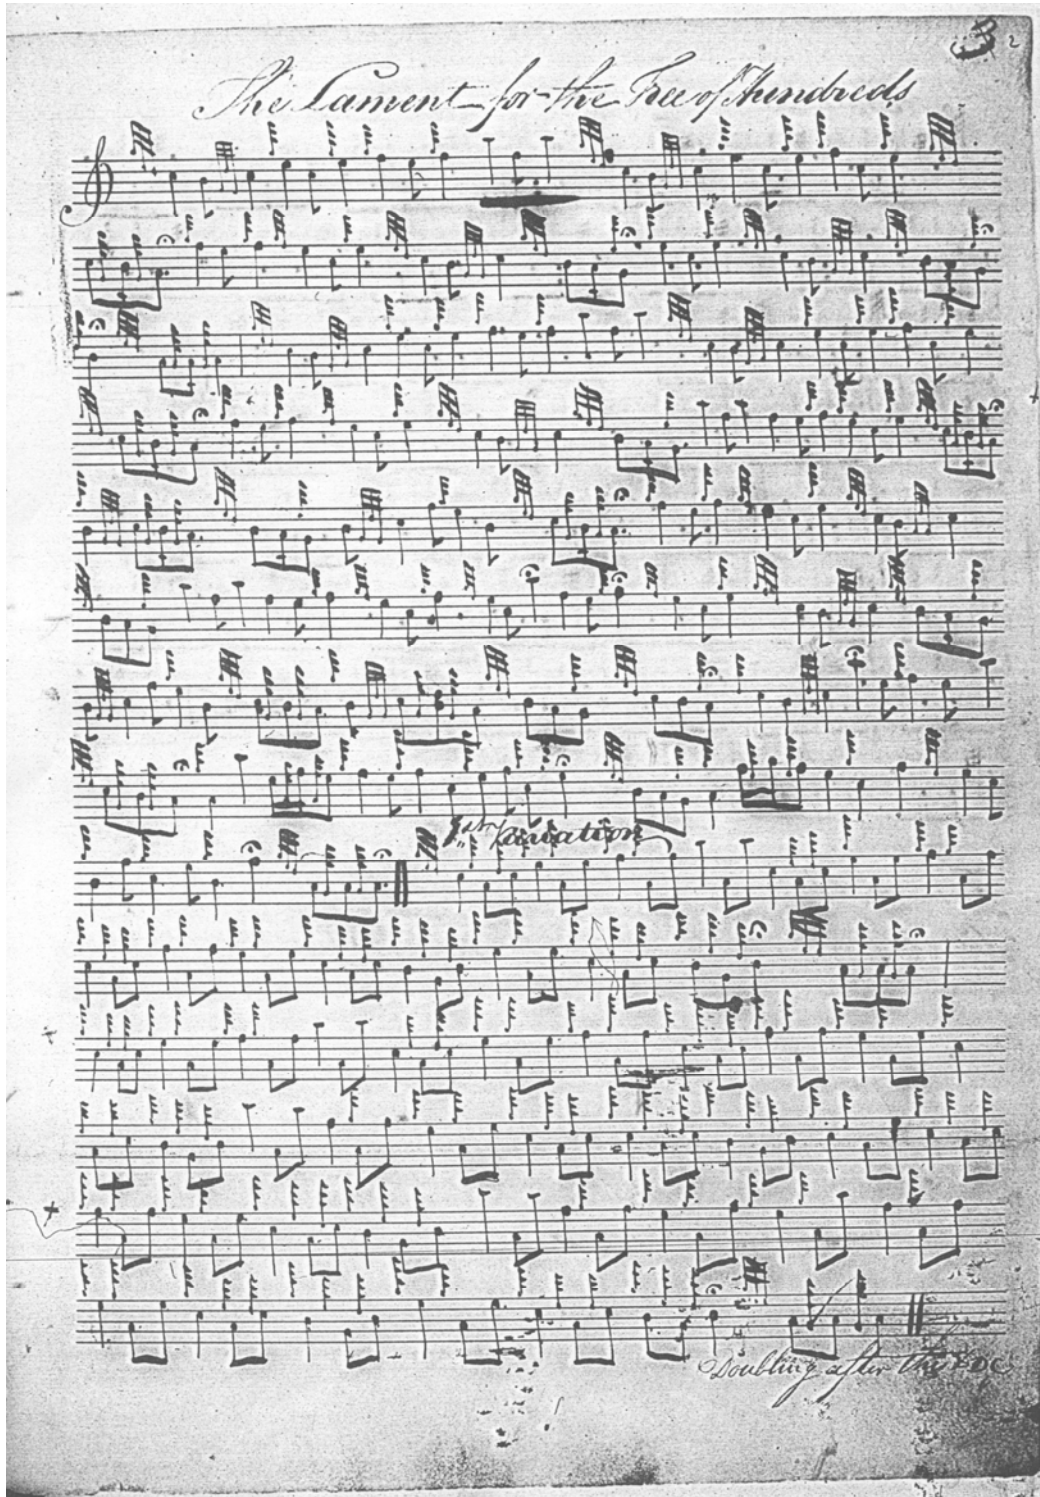 2
The Lament for the Tree of Hundreds
1st Variation
Doubling after this DC